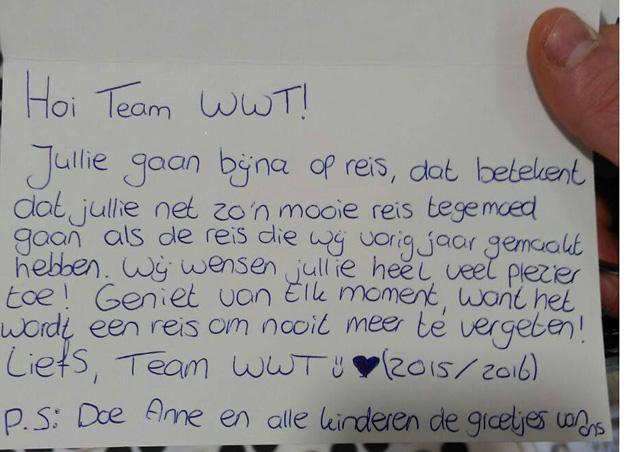 Hoi Team WWT!
Jullie gaan bijna op reis, dat betekent
dat jullie net zo'n mooie reis tegemoed
gaan als de reis die wij vorig jaar gemaakt
hebben. Wij wensen jullie heel veel plezier
toe! Geniet van elk moment, want het
wordt een reis om nooit meer te vergeten!
Liefs, Team WWT ü♥(2015/2016)
P.S.: Doe Anne en alle kinderen de groetjes van ons